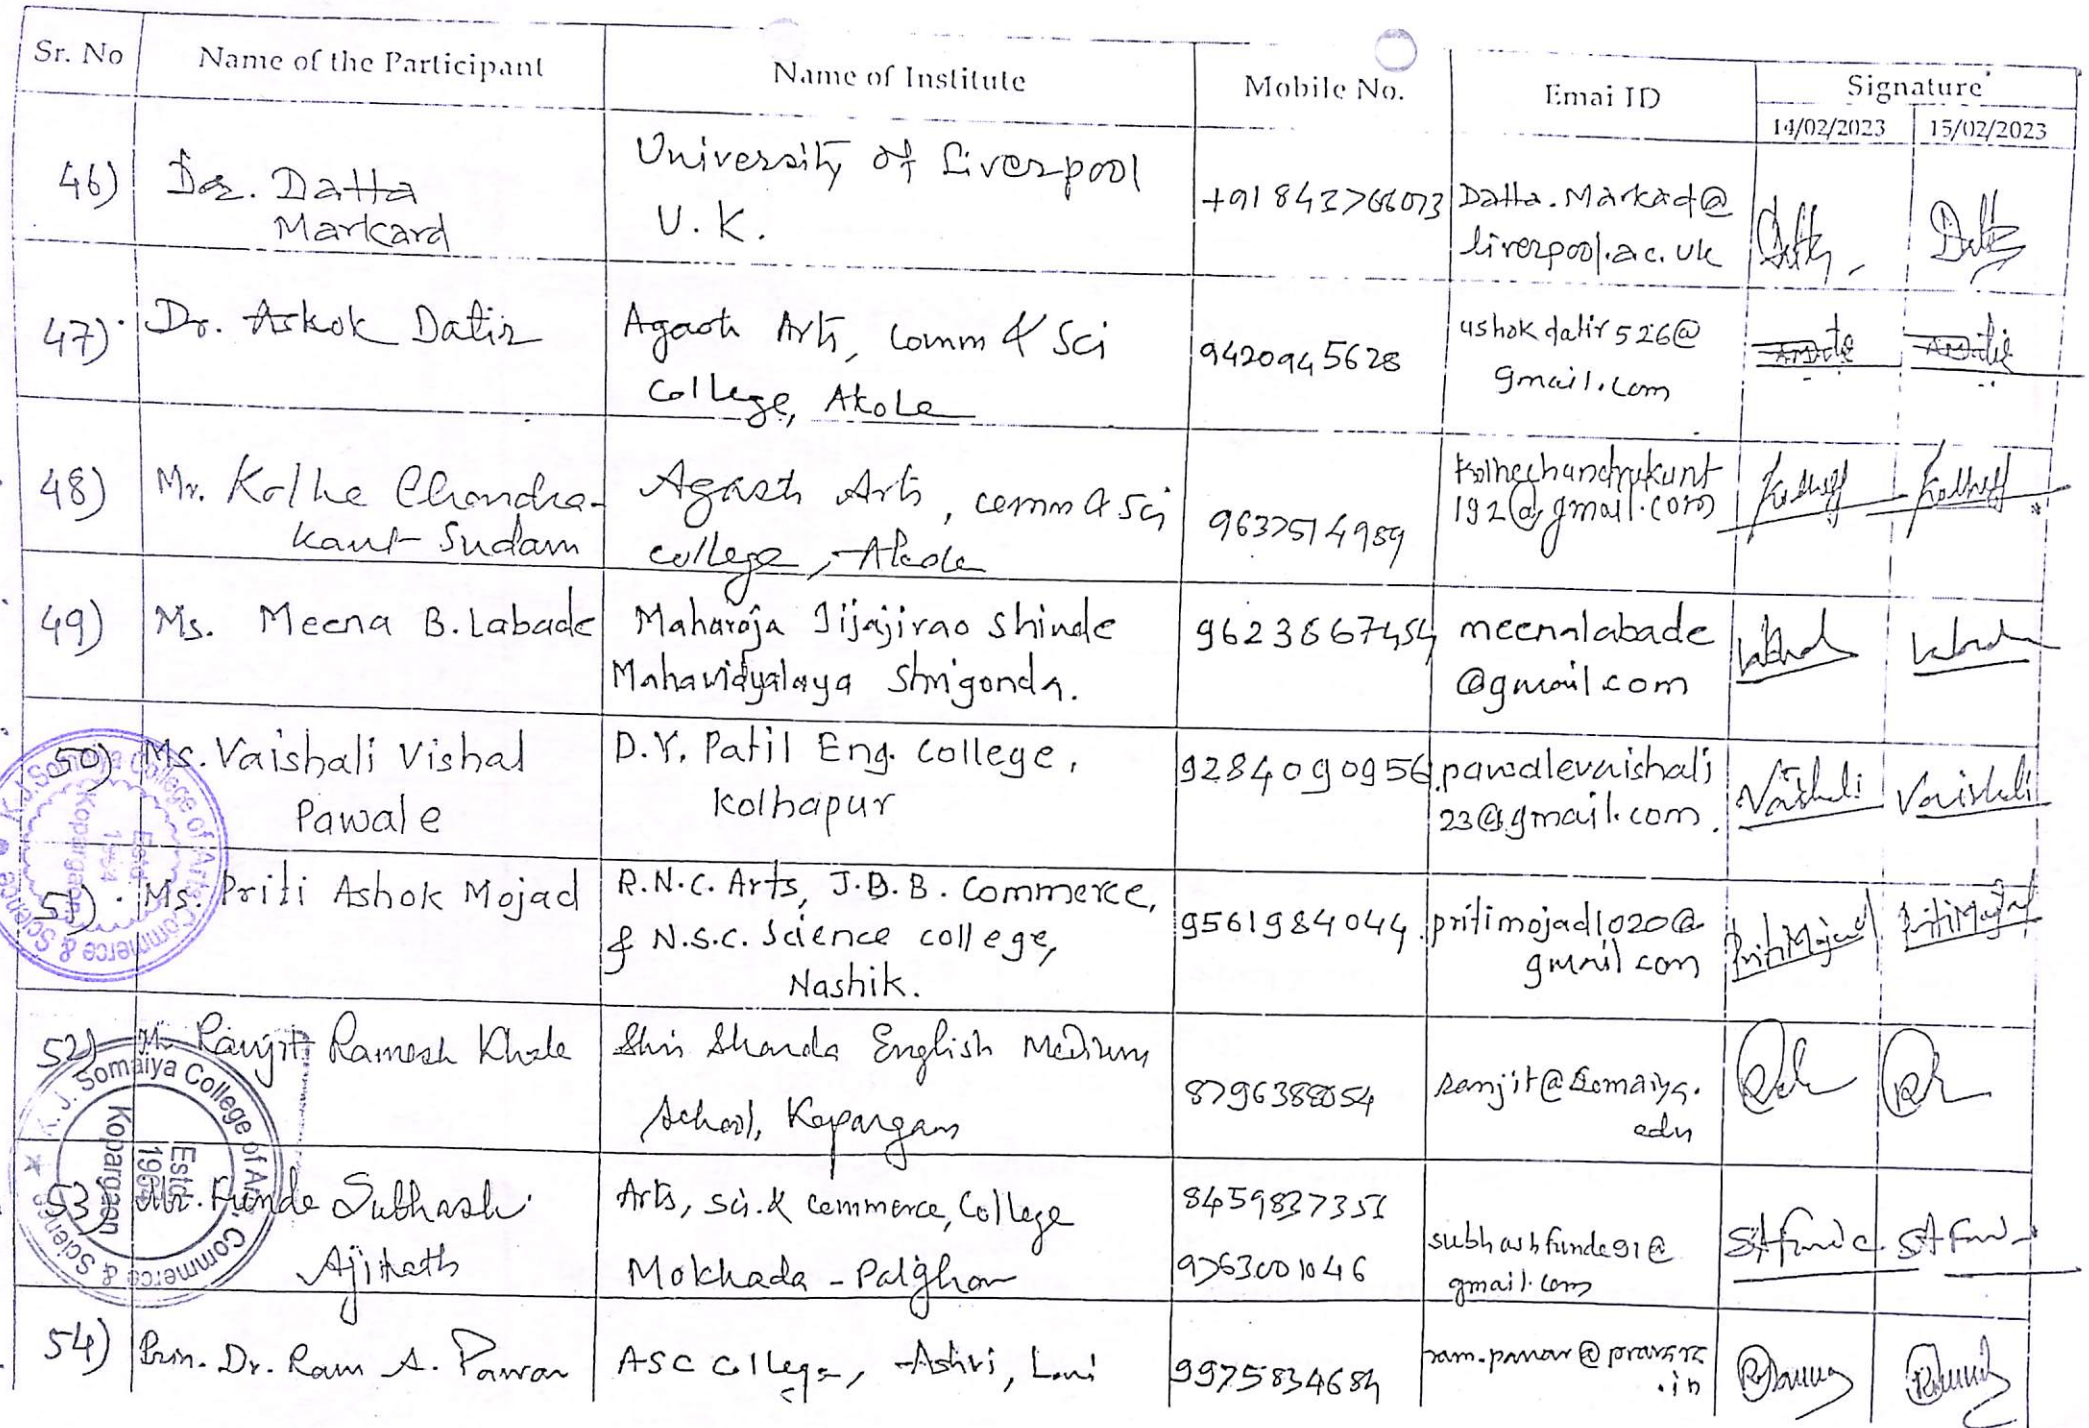 Sr. No
Name of the Participant
Name of Institute
Mobile No.
Emai ID
Signature
14/02/2023
15/02/2023
46)
Dr. Datta
Markard
University of Liverpool
U. K.
Datta.Markad@
liverpool.ac.uk
47)
Dr. Ashok Datir
Agasti Arts, Comm & Sci
College, Akole
9420945628
ashokdatir526@
gmail.com
48)
Mr. Kolhe Chandra-
kant Sudam
Agasti Arts, comm & Sci
college, Akole
9637514989
kolhechandrakant
192@gmail.com
49)
Ms. Meena B. Labade
Maharaja Jijajirao Shinde
Mahavidyalaya Shrigonda.
9623667454
meenalabade
@gmail.com
50)
Ms. Vaishali Vishal
Pawale
D.Y. Patil Eng. College,
Kolhapur
9284090956
pawalevaishali
23@gmail.com.
Vaishali
Vaishali
51)
Ms. Priti Ashok Mojad
R.N.C. Arts, J.D.B. Commerce,
& N.S.C. Science college,
Nashik.
9561984044
pritimojad1020@
gmail com
PritiMojad
PritiMojad
52)
Ranjit Ramesh
Shri Sharda English Medium
School, Kopargaon
8796388054
ranjit@somaiya.
edu
53)
Mr. Funde Subhash
Ajinath
Arts, Sci. & Commerce, College
Mokhada - Palghar
8459837351
subhashfunde91@
gmail.com
SAFunde
54)
Prin. Dr. Ram A. Pawar
ASC College, Loni
9975834684
K. J. Somaiya College of Arts, Commerce & Science
Kopargaon
Estd
1964
K. J. Somaiya College of Arts Commerce & Science
Kopargaon
Estd.
1964